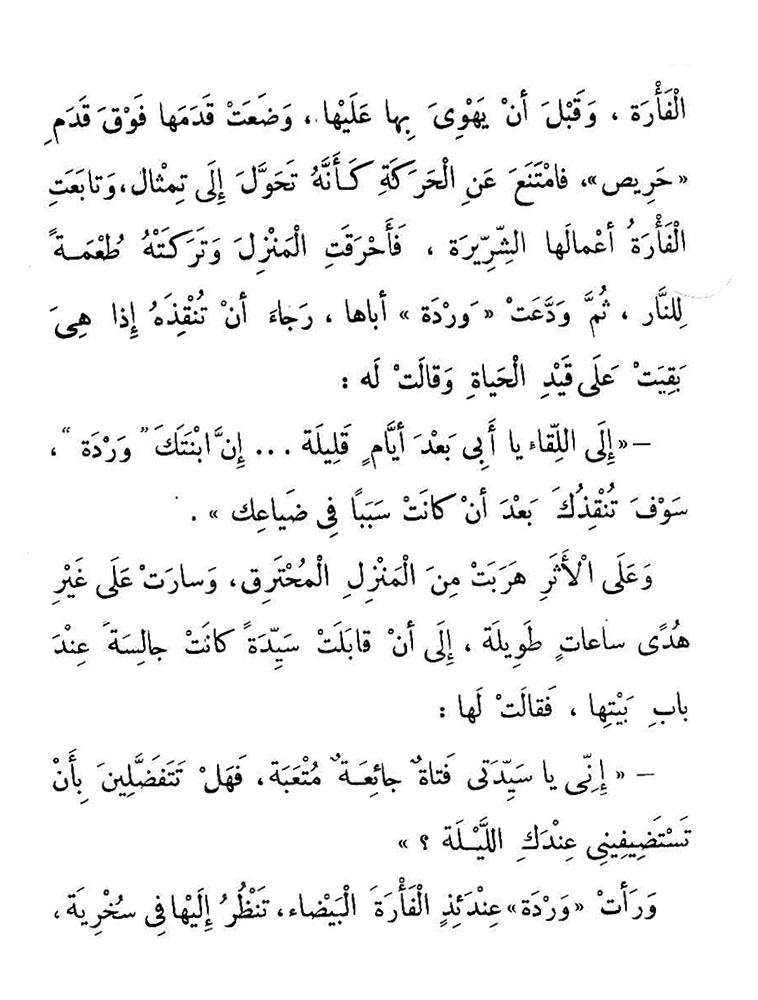 الْفَأْرَة ، وَقَبْلَ أنْ يَهْوِىَ بِها عَلَيْها ، وَضَعَتْ قَدَمَها فَوْقَ قَدَمِ
«حَرِيص»، فامْتَنَعَ عَنِ الْحَرَكَةِ كَأَنَّهُ تَحَوَّلَ إِلَى تِمْثال، وَتابَعَتِ
الْفَأْرَةُ أعْمالَها الشِّرِّيرَة ، فَأَحْرَقَتِ الْمَنْزِلَ وَتَرَكَتْهُ طُعْمَةً
لِلنَّار ، ثُمَّ وَدَّعَتْ «وَرْدَة» أباها ، رَجاءَ أنْ تُنْقِذَهُ إذا هِىَ
بَقِيَتْ عَلَى قَيْدِ الْحَياةِ وَقالَتْ لَه :
– «إِلَى اللِّقاء يا أَبِى بَعْدَ أيَّامٍ قَلِيلَة ... إِنَّ ابْنَتَكَ ”وَرْدَة“ ،
سَوْفَ تُنْقِذُكَ بَعْدَ أنْ كانَتْ سَبَبًا فِى ضَياعِك » .
وَعَلَى الْأَثَرِ هَرَبَتْ مِنَ الْمَنْزِلِ الْمُحْتَرِق، وَسارَتْ عَلَى غَيْرِ
هُدًى ساعاتٍ طَوِيلَة ، إِلَى أنْ قابَلَتْ سَيِّدَةً كانَتْ جالِسَةً عِنْدَ
بابِ بَيْتِها ، فَقالَتْ لَها :
– « إِنِّى يا سَيِّدَتِى فَتاةٌ جائِعَةٌ مُتْعَبَة ، فَهَلْ تَتَفَضَّلِينَ بِأَنْ
تَسْتَضِيفِينِى عِنْدَكِ اللَّيْلَة ؟ »
وَرَأتْ «وَرْدَة» عِنْدَئِذٍ الْفَأْرَةَ الْبَيْضاء، تَنْظُرُ إِلَيْها فِى سُخْرِيَة ،